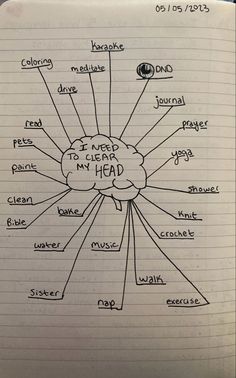 05/05/2023
karaoke
coloring
meditate
DND
drive
journal
read
prayer
pets
yoga
paint
I NEED
TO CLEAR
MY HEAD
shower
clean
bake
knit
Bible
crochet
water
music
walk
Sister
nap
exercise